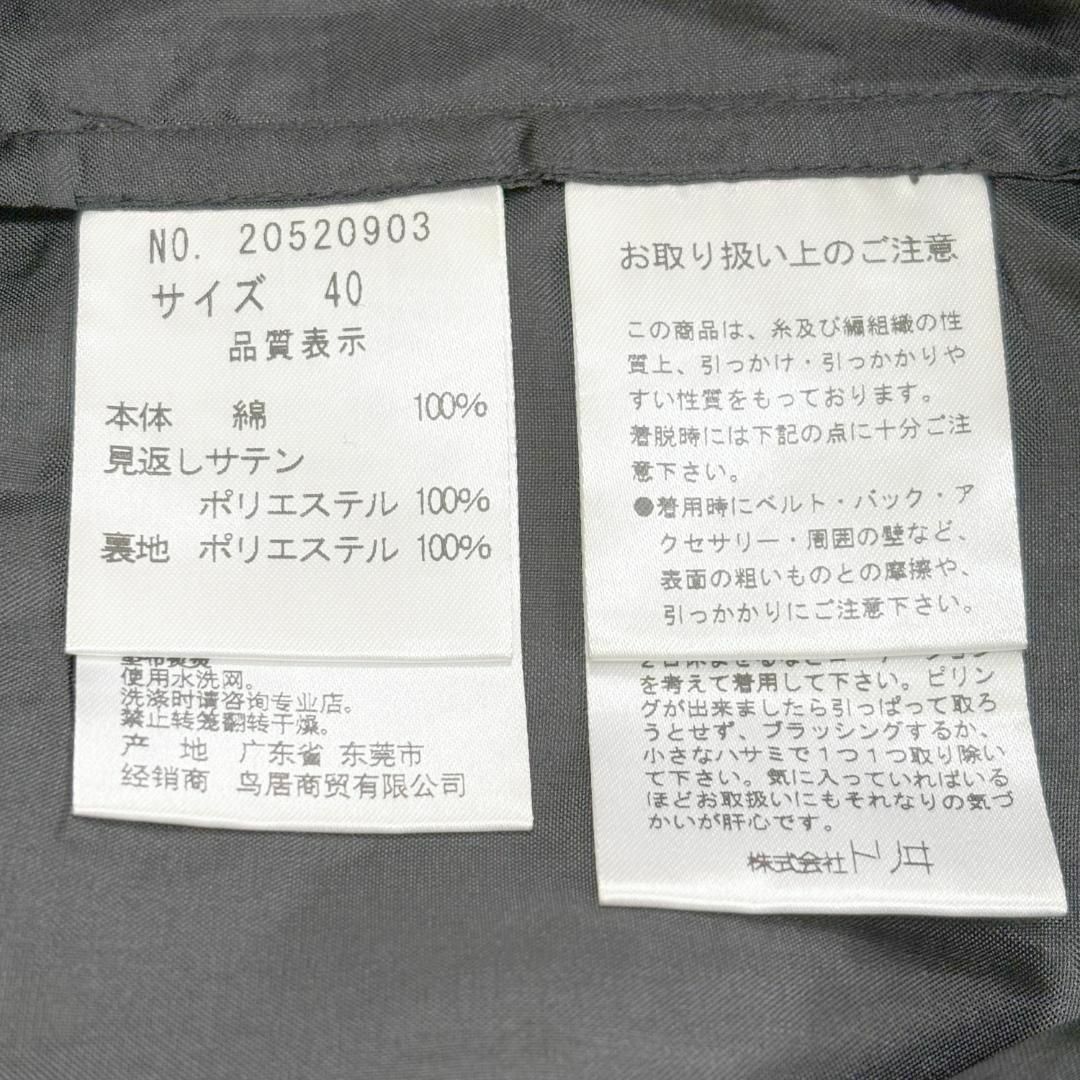 NO. 20520903
サイズ 40
品質表示
本体 綿 100%
見返しサテン
ポリエステル 100%
裏地 ポリエステル 100%
使用水洗网。
洗涤时请咨询专业店。
禁止转笼翻转干燥。
产 地 广东省 东莞市
经销商 鸟居商贸有限公司
お取り扱い上のご注意
この商品は、糸及び編組織の性
質上、引っかけ・引っかかりや
すい性質をもっております。
着脱時には下記の点に十分ご注
意下さい。
●着用時にベルト・バック・ア
クセサリー・周囲の壁など、
表面の粗いものとの摩擦や、
引っかかりにご注意下さい。
を考えて着用して下さい。ピリン
グが出来ましたら引っぱって取ろ
うとせず、ブラッシングするか、
小さなハサミで1つ1つ取り除い
て下さい。気に入っていればいる
ほどお取扱いにもそれなりの気づ
かいが肝心です。
株式会社